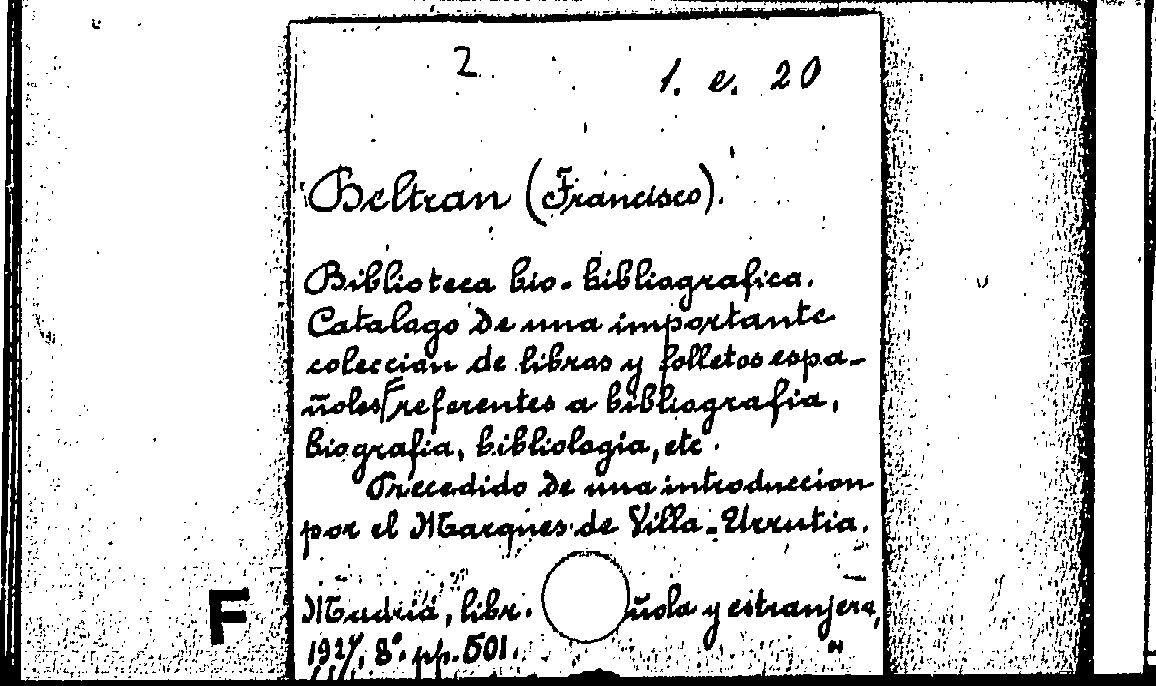 2
1. e. 20
Beltran (Francisco).
Biblioteca bio-bibliografica.
Catalago de una importante
coleccian de libros y folletos espa-
ñoles referentes a bibliografia,
biografia, bibliologia, etc.
Precedido de una introduccion
por el Marques de Villa-Urrutia.
Madrid, libr. ñola y estranjera,
1927, 8° pp. 501.
F